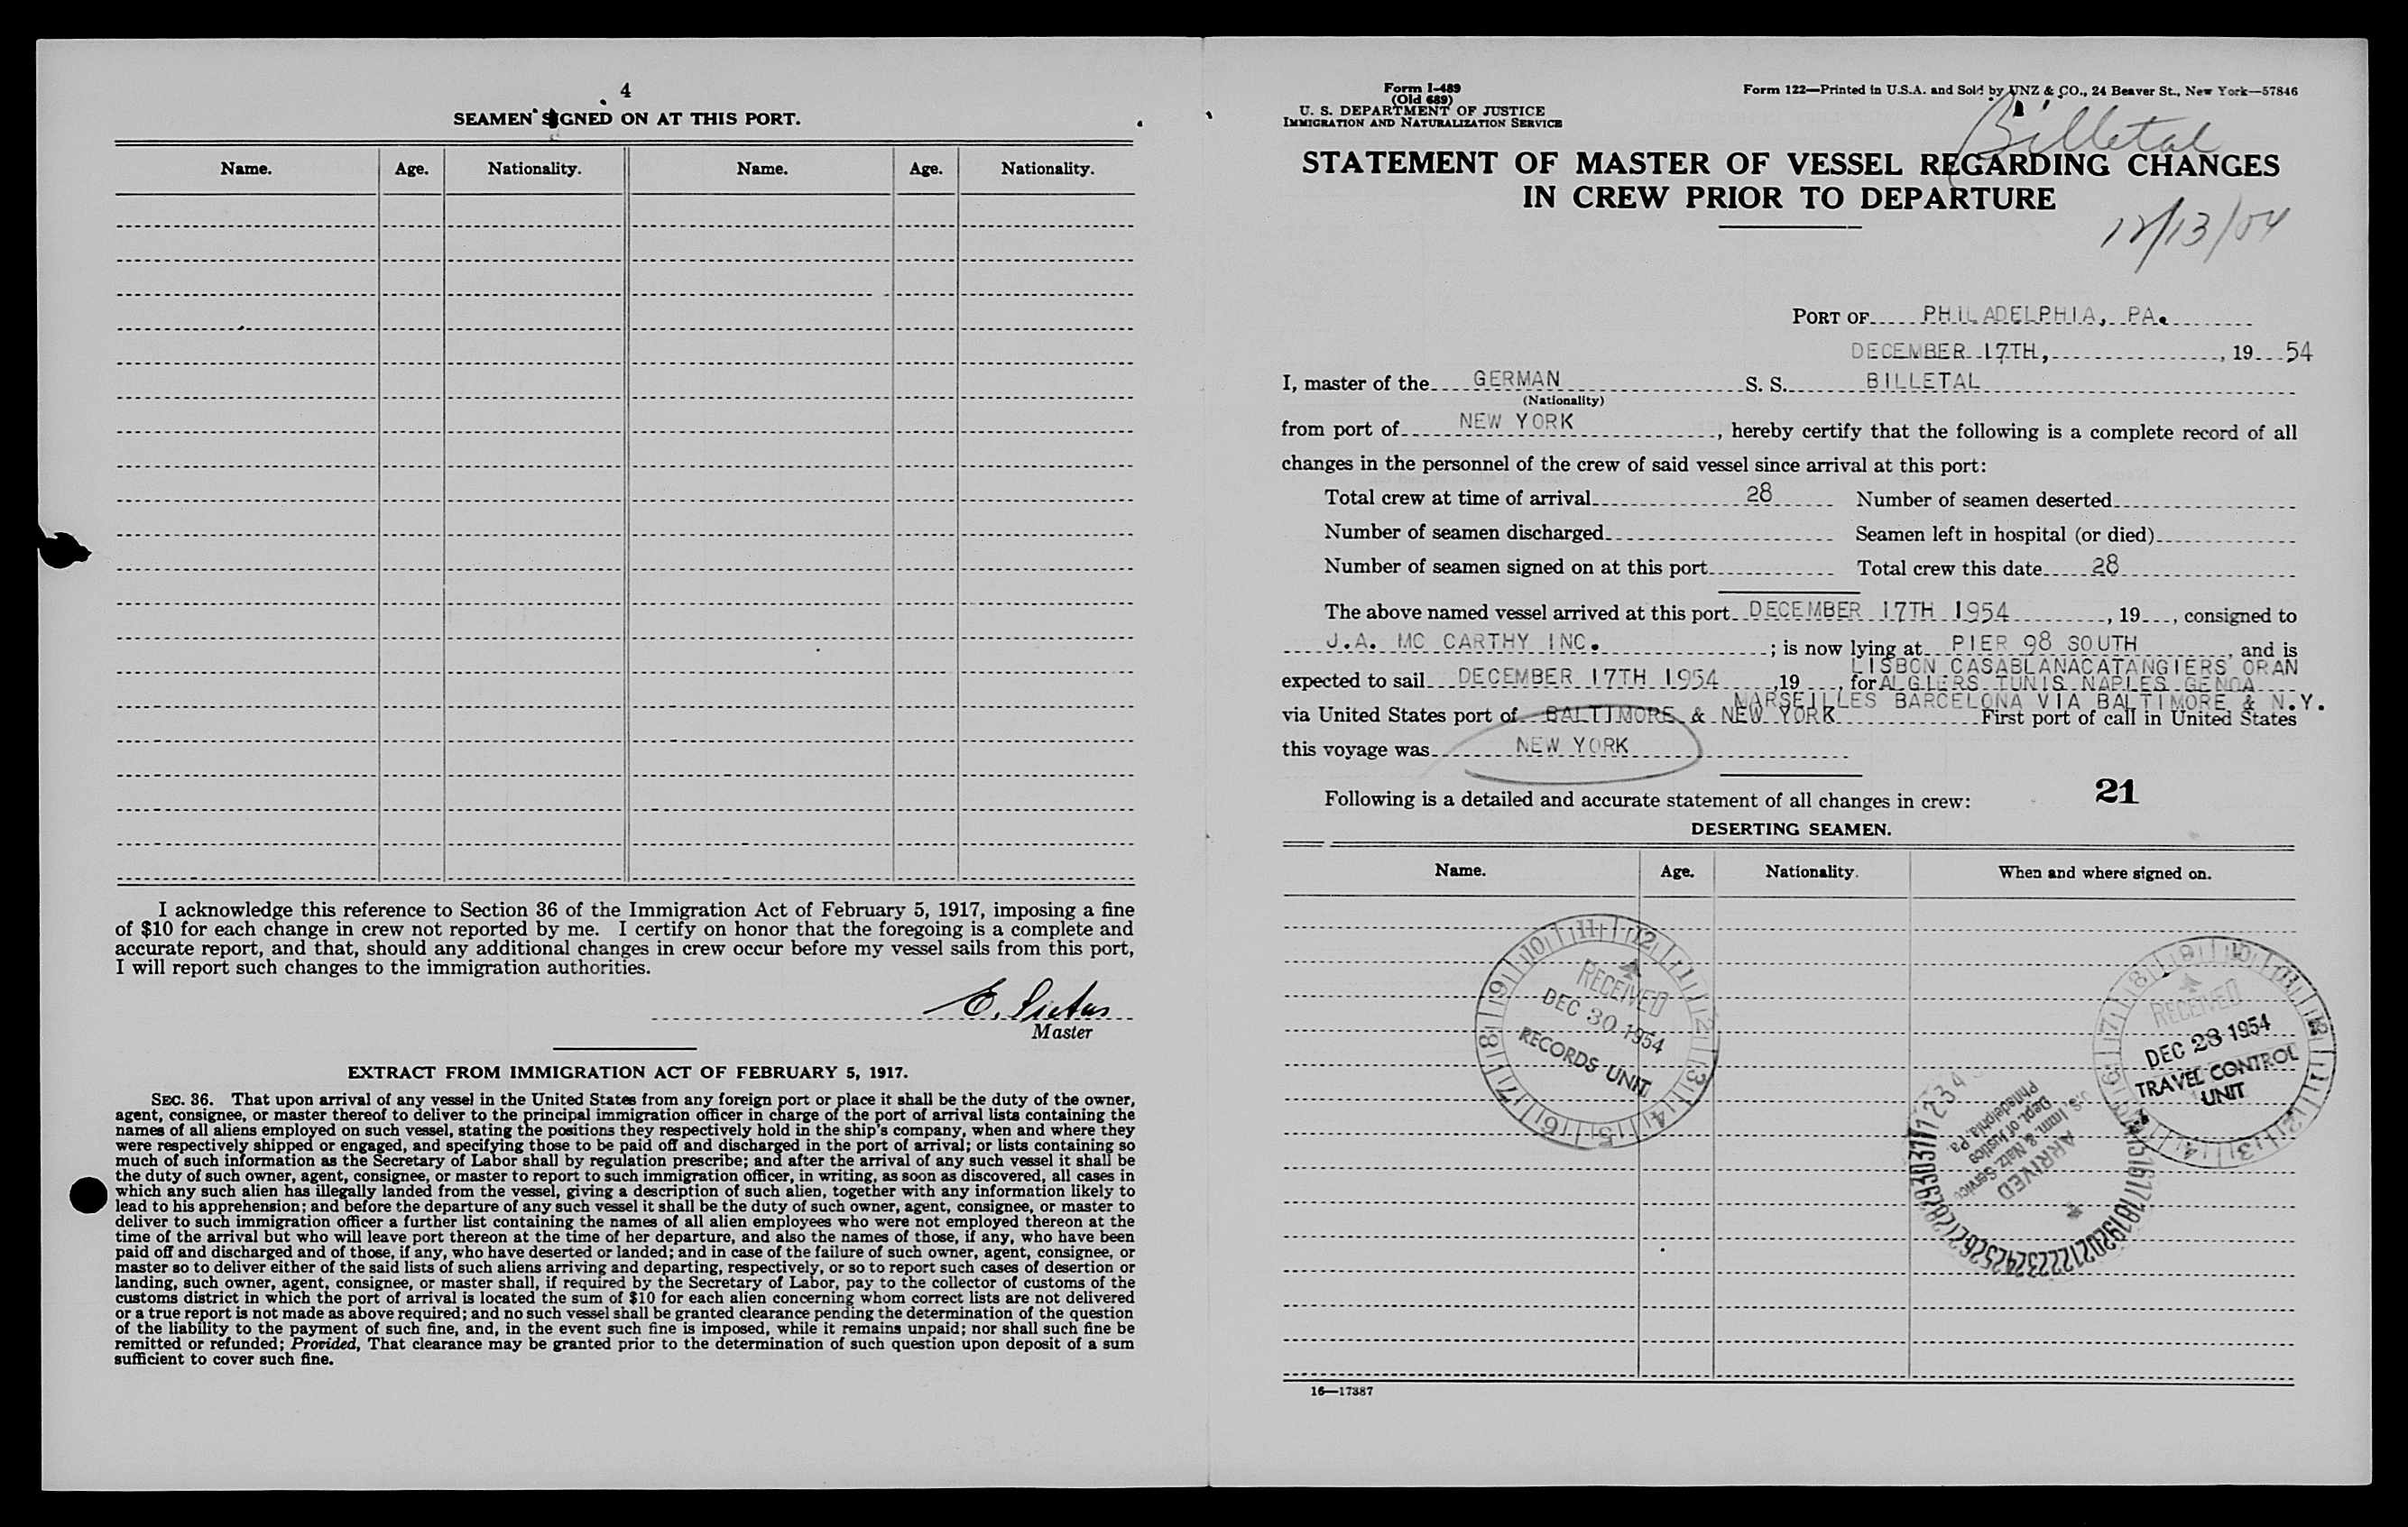 4
SEAMEN SIGNED ON AT THIS PORT.
Name. Age. Nationality. Name. Age. Nationality.
I acknowledge this reference to Section 36 of the Immigration Act of February 5, 1917, imposing a fine
of $10 for each change in crew not reported by me. I certify on honor that the foregoing is a complete and
accurate report, and that, should any additional changes in crew occur before my vessel sails from this port,
I will report such changes to the immigration authorities.
E.
Master
EXTRACT FROM IMMIGRATION ACT OF FEBRUARY 5, 1917.
SEC. 36. That upon arrival of any vessel in the United States from any foreign port or place it shall be the duty of the owner,
agent, consignee, or master thereof to deliver to the principal immigration officer in charge of the port of arrival lists containing the
names of all aliens employed on such vessel, stating the positions they respectively hold in the ship's company, when and where they
were respectively shipped or engaged, and specifying those to be paid off and discharged in the port of arrival; or lists containing so
much of such information as the Secretary of Labor shall by regulation prescribe; and after the arrival of any such vessel it shall be
the duty of such owner, agent, consignee, or master to report to such immigration officer, in writing, as soon as discovered, all cases in
which any such alien has illegally landed from the vessel, giving a description of such alien, together with any information likely to
lead to his apprehension; and before the departure of any such vessel it shall be the duty of such owner, agent, consignee, or master to
deliver to such immigration officer a further list containing the names of all alien employees who were not employed thereon at the
time of the arrival but who will leave port thereon at the time of her departure, and also the names of those, if any, who have been
paid off and discharged and of those, if any, who have deserted or landed; and in case of the failure of such owner, agent, consignee, or
master so to deliver either of the said lists of such aliens arriving and departing, respectively, or so to report such cases of desertion or
landing, such owner, agent, consignee, or master shall, if required by the Secretary of Labor, pay to the collector of customs of the
customs district in which the port of arrival is located the sum of $10 for each alien concerning whom correct lists are not delivered
or a true report is not made as above required; and no such vessel shall be granted clearance pending the determination of the question
of the liability to the payment of such fine, and, in the event such fine is imposed, while it remains unpaid; nor shall such fine be
remitted or refunded; Provided, That clearance may be granted prior to the determination of such question upon deposit of a sum
sufficient to cover such fine.
Form I-489
(Old 689)
U. S. DEPARTMENT OF JUSTICE
IMMIGRATION AND NATURALIZATION SERVICE
Form 122—Printed in U.S.A. and Sold by UNZ & CO., 24 Beaver St., New York—57846
Billetal
STATEMENT OF MASTER OF VESSEL REGARDING CHANGES
IN CREW PRIOR TO DEPARTURE
12/13/54
PORT OF PHILADELPHIA, PA.
DECEMBER 17TH, , 19 54
I, master of the GERMAN S. S. BILLETAL
(Nationality)
from port of NEW YORK , hereby certify that the following is a complete record of all
changes in the personnel of the crew of said vessel since arrival at this port:
Total crew at time of arrival 28 Number of seamen deserted
Number of seamen discharged Seamen left in hospital (or died)
Number of seamen signed on at this port Total crew this date 28
The above named vessel arrived at this port DECEMBER 17TH 1954 , 19 , consigned to
J.A. MC CARTHY INC. ; is now lying at PIER 98 SOUTH , and is
LISBON CASABLANACATANGIERS ORAN
expected to sail DECEMBER 17TH 1954 ,19 , for ALGIERS TUNIS NAPLES GENOA
MARSEILLES BARCELONA VIA BALTIMORE & N.Y.
via United States port of BALTIMORE & NEW YORK First port of call in United States
this voyage was NEW YORK
21
Following is a detailed and accurate statement of all changes in crew:
DESERTING SEAMEN.
Name. Age. Nationality. When and where signed on.
RECEIVED
DEC 30 1954
RECORDS UNIT
RECEIVED
DEC 28 1954
TRAVEL CONTROL
UNIT
ARRIVED
U.S. Imm. & Natz. Service
Dept. of Justice
Philadelphia, Pa
16—17387